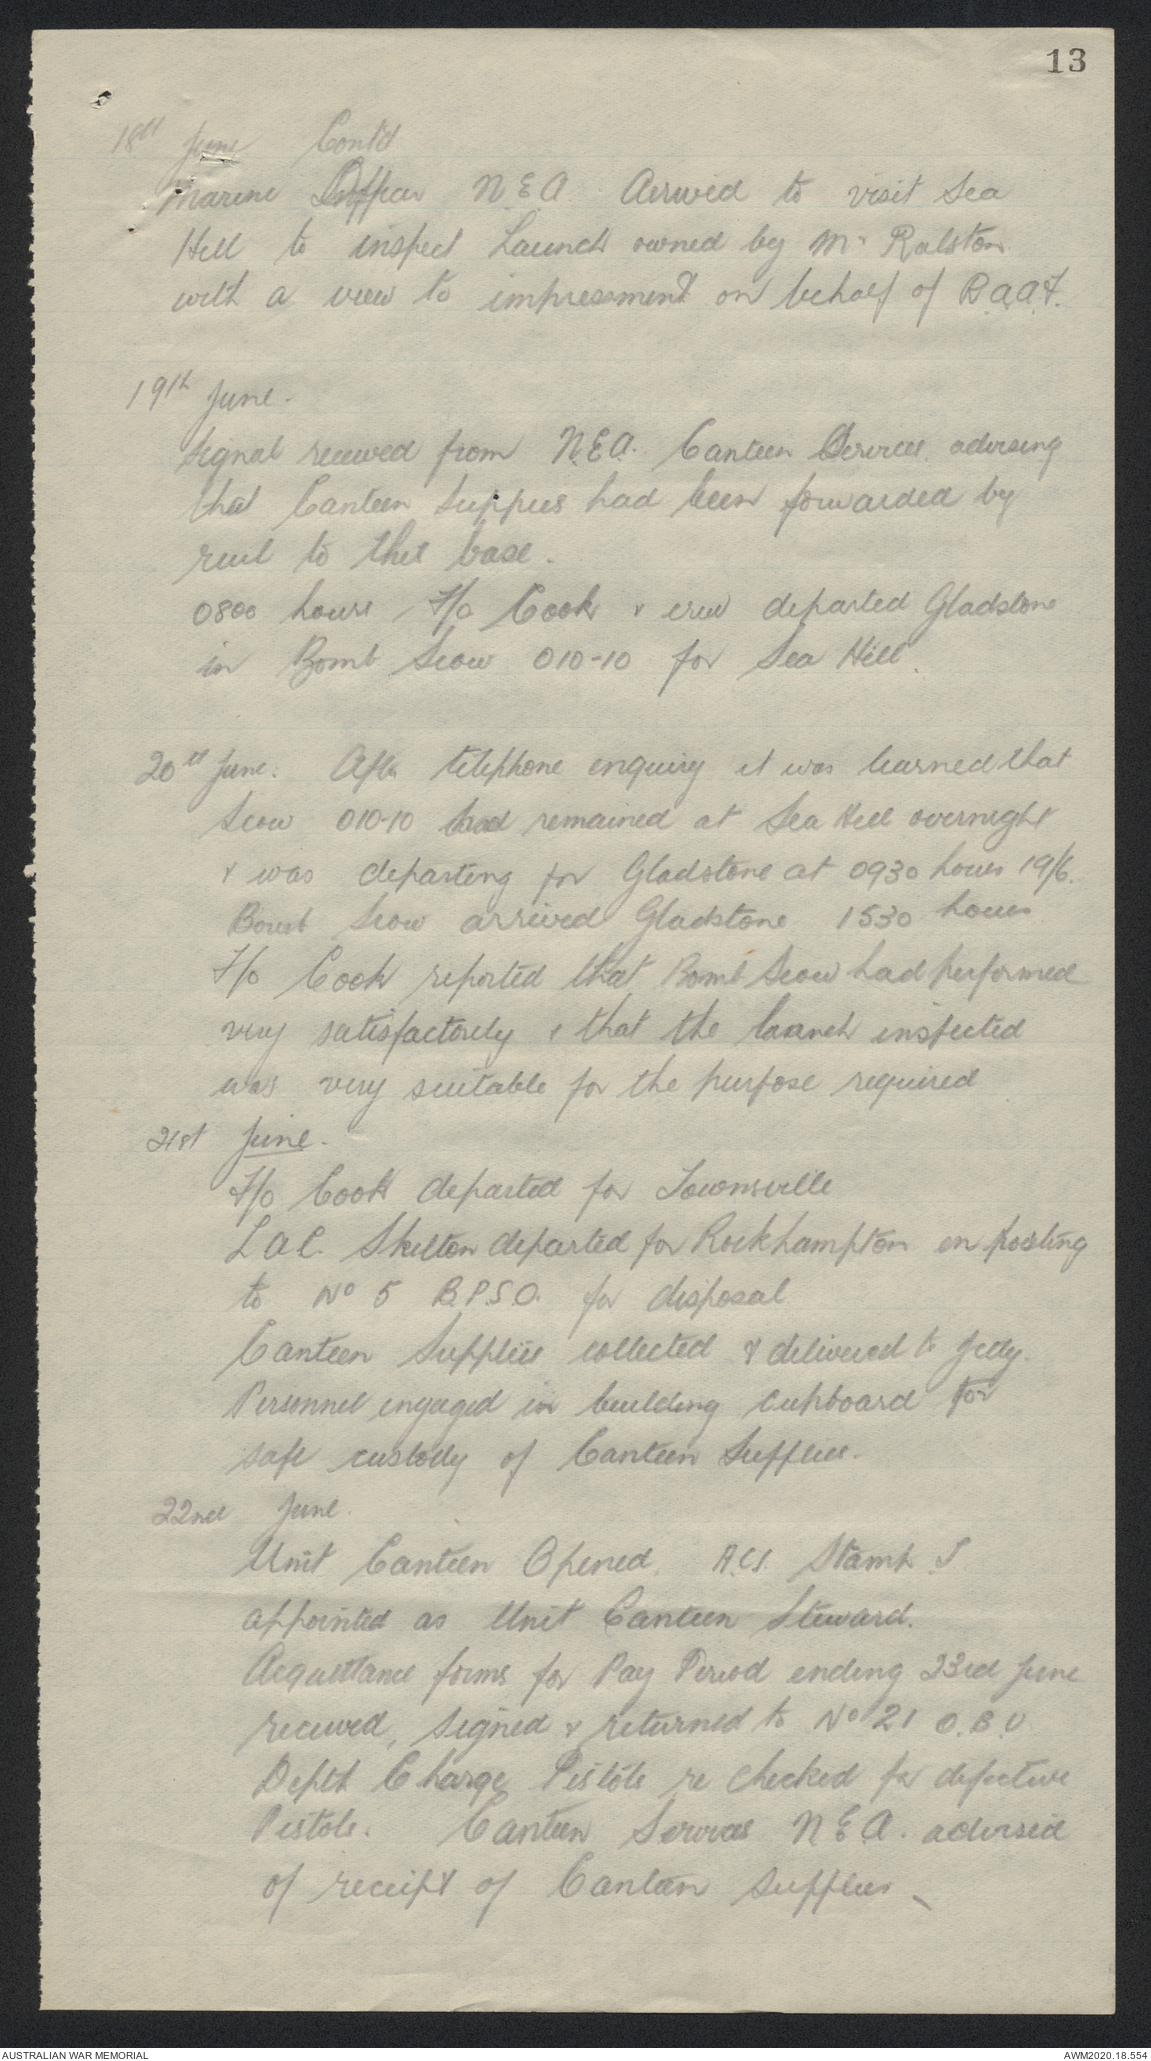 13
18th June Cont'd
Marine Officer N.E.A. Arrived to visit Sea
Hill to inspect Launch owned by Mr Ralston
with a view to impressment on behalf of R.A.A.F.
19th June.
Signal received from N.E.A. Canteen Services advising
that Canteen Suppies had been forwarded by
rail to this base.
0800 hours F/O Cook & crew departed Gladstone
in Bomb Scow 010-10 for Sea Hill.
20th June. After telephone enquiry it was learned that
Scow 010-10 had remained at Sea Hill overnight
& was departing for Gladstone at 0930 hours 19/6.
Bomb Scow arrived Gladstone 1530 hours
F/O Cook reported that Bomb Scow had performed
very satisfactorily & that the launch inspected
was very suitable for the purpose required
21st June.
F/O Cook departed for Townsville
LAC. Skelton departed for Rockhampton on posting
to No 5 B.P.S.O. for disposal
Canteen Supplies collected & delivered to Jetty.
Personnel engaged in building cupboard for
safe custody of Canteen Supplies.
22nd June.
Unit Canteen Opened. A.C.1. Stamp
appointed as Unit Canteen Steward.
Acquittance forms for Pay Period ending 23rd June
received, signed & returned to No 21 O.B.U.
Depth Charge Pistols re checked for defective
Pistols. Canteen Services N.E.A. advised
of receipt of Canteen Supplies
AUSTRALIAN WAR MEMORIAL
AWM2020.18.554